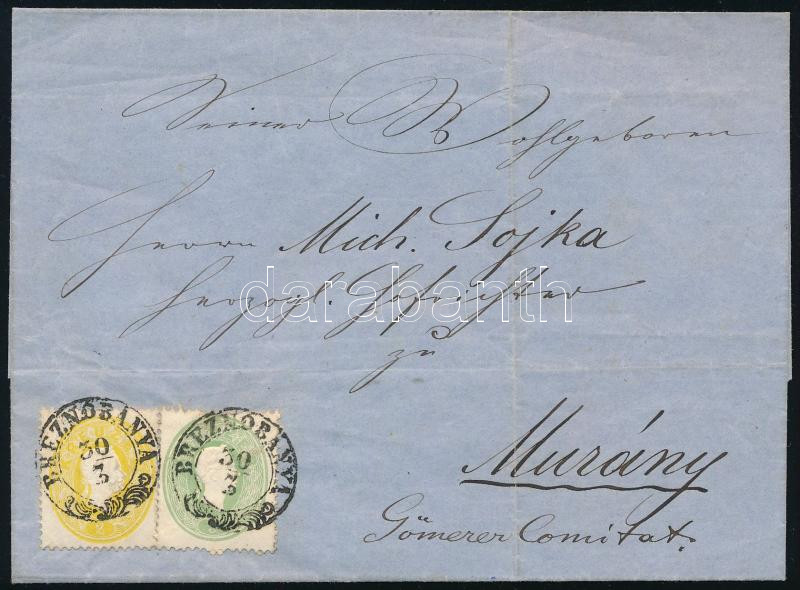 Seiner Wohlgeboren
Herrn Mich. Sojka
herzogl. Hofrichter
zu
Murány
Gömerer Comitat.
BREZNÓBÁNYA
30/3
BREZNÓBÁNYA
30/3
darabanth